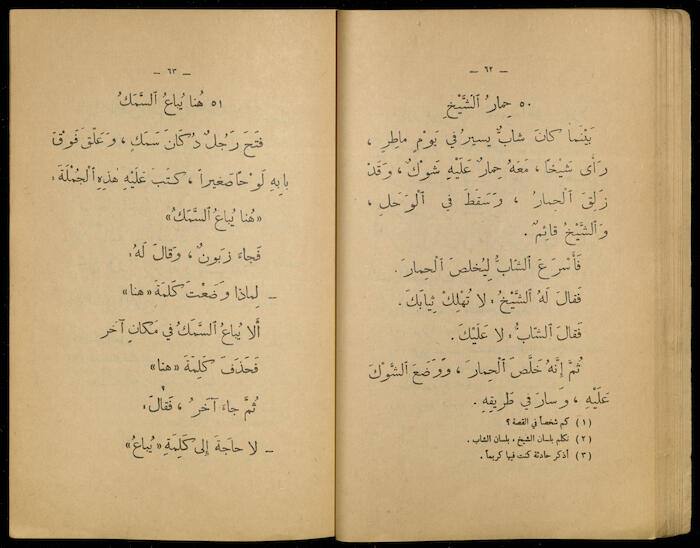 — ٦٢ —
٥٠ حِمارُ ٱلشَّيْخِ
بَيْنَما كانَ شابٌّ يسيرُ في يَوْمٍ ماطِرٍ ،
رَأَى شَيْخاً ، مَعَهُ حِمارٌ عَلَيْهِ شَوْكٌ ، وَقَدْ
زَلِقَ ٱلْحِمارُ ، وَسَقَطَ في ٱلْوَحَلِ ،
وَٱلشَّيْخُ قائِمٌ .
فَأَسْرَعَ ٱلشّابُّ لِيُخلصَ ٱلْحِمارَ .
فَقالَ لَهُ ٱلشَّيْخُ : لا تُهْلِكْ ثِيابَكَ .
فَقالَ ٱلشّابُّ : لا عَلَيْكَ .
ثُمَّ إِنَّهُ خَلَّصَ ٱلْحِمارَ ، وَوَضَعَ ٱلشَّوْكَ
عَلَيْهِ ، وَسارَ في طَريقِهِ .
(١) كم شخصاً في القصة ؟
(٢) تكلم بلسان الشيخ ، بلسان الشاب .
(٣) أذكر حادثة كنت فيها كريماً .
— ٦٣ —
٥١ هُنا يُباعُ ٱلسَّمَكُ
فَتَحَ رَجُلٌ دُكّانَ سَمَكٍ ، وَعَلَّقَ فَوْقَ
بابِهِ لَوْحاً صَغيراً ، كَتَبَ عَلَيْهِ هٰذِهِ ٱلْجُمْلَةَ :
«هُنا يُباعُ ٱلسَّمَكُ»
فَجاءَ زَبونٌ ، وَقالَ لَهُ :
– لِماذا وَضَعْتَ كَلِمَةَ «هنا»
أَلا يُباعُ ٱلسَّمَكُ في مَكانٍ آخَر
فَحَذَفَ كَلِمَةَ «هنا»
ثُمَّ جاءَ آخَرُ ، فَقالَ :
– لا حاجَةَ إِلى كَلِمَةِ «يُباعُ»